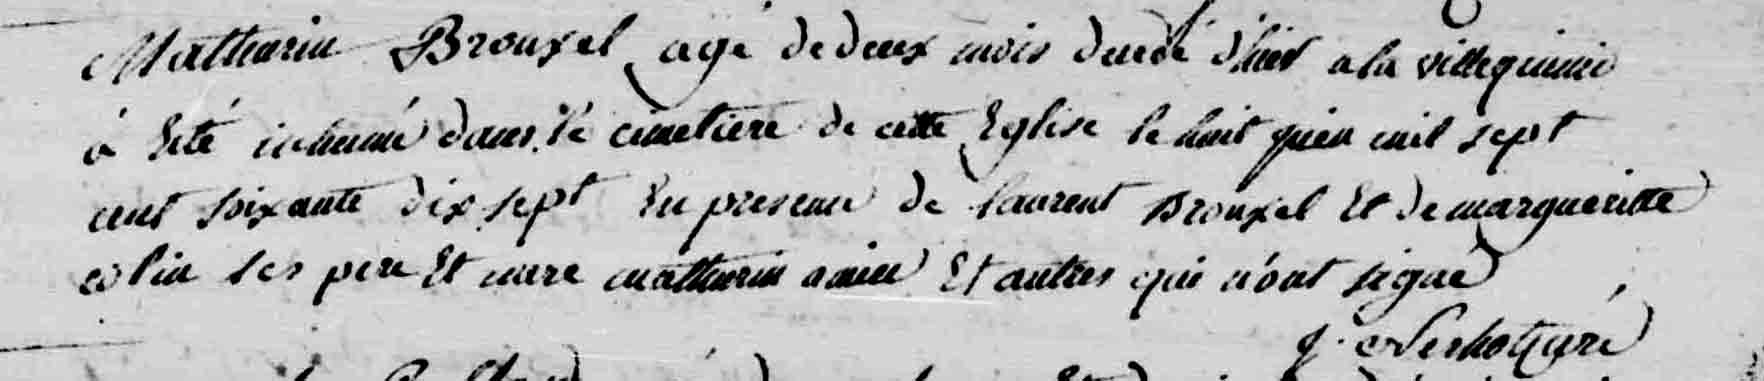 Mathurin Brouxel agé de deux mois decedé d'hier a la ville
à Eté inhumé dans le cimetiere de cette Eglise le huit juin mil sept
cent soixante dix sept En presence de laurent Brouxel Et de margueritte
colin ses pere Et mere mathurin Et autres qui n'ont signé